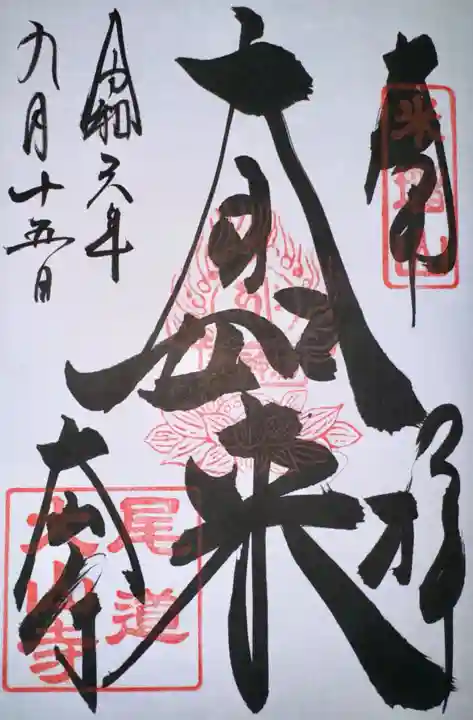 奉拝
大日如来
令和六年
九月十五日
大山寺
尾道
大山寺